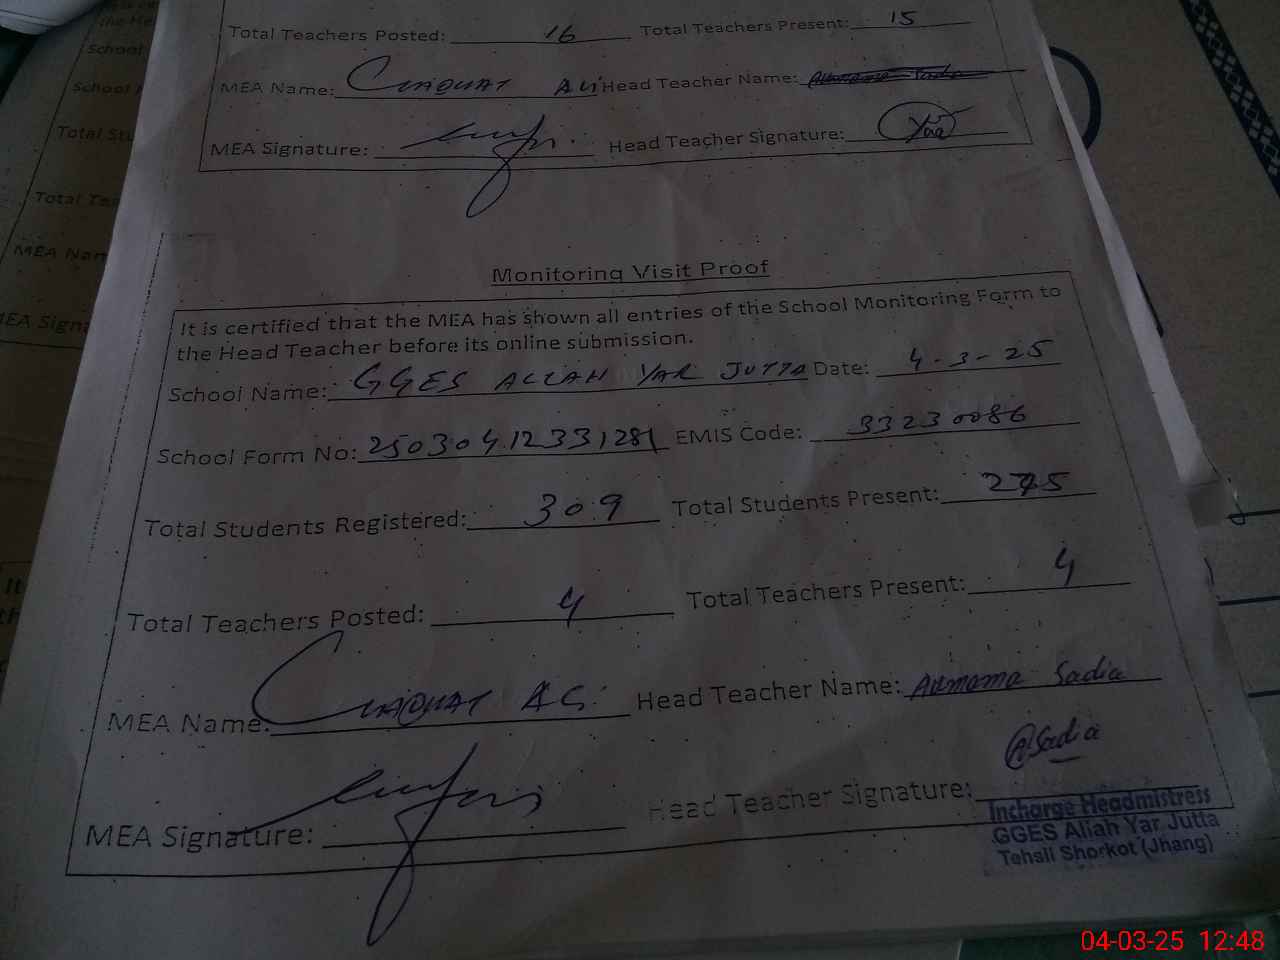 Total Teachers Posted: 16 Total Teachers Present: 15
MEA Name: LIAQUAT Ali Head Teacher Name:
MEA Signature: Head Teacher Signature:
Monitoring Visit Proof
It is certified that the MEA has shown all entries of the School Monitoring Form to
the Head Teacher before its online submission.
School Name: GGES ALLAH YAR JUTTA Date: 4-3-25
School Form No: 25030412331281 EMIS Code: 33230086
Total Students Registered: 309 Total Students Present: 275
Total Teachers Posted: 4 Total Teachers Present: 4
MEA Name: LIAQUAT ALi Head Teacher Name: Sadia
MEA Signature: Head Teacher Signature: Sadia
Incharge Headmistress
GGES Allah Yar Jutta
Tehsil Shorkot (Jhang)
School
School
Total Stu
Total Tea
MEA Nam
MEA Signa
It
04-03-25 12:48